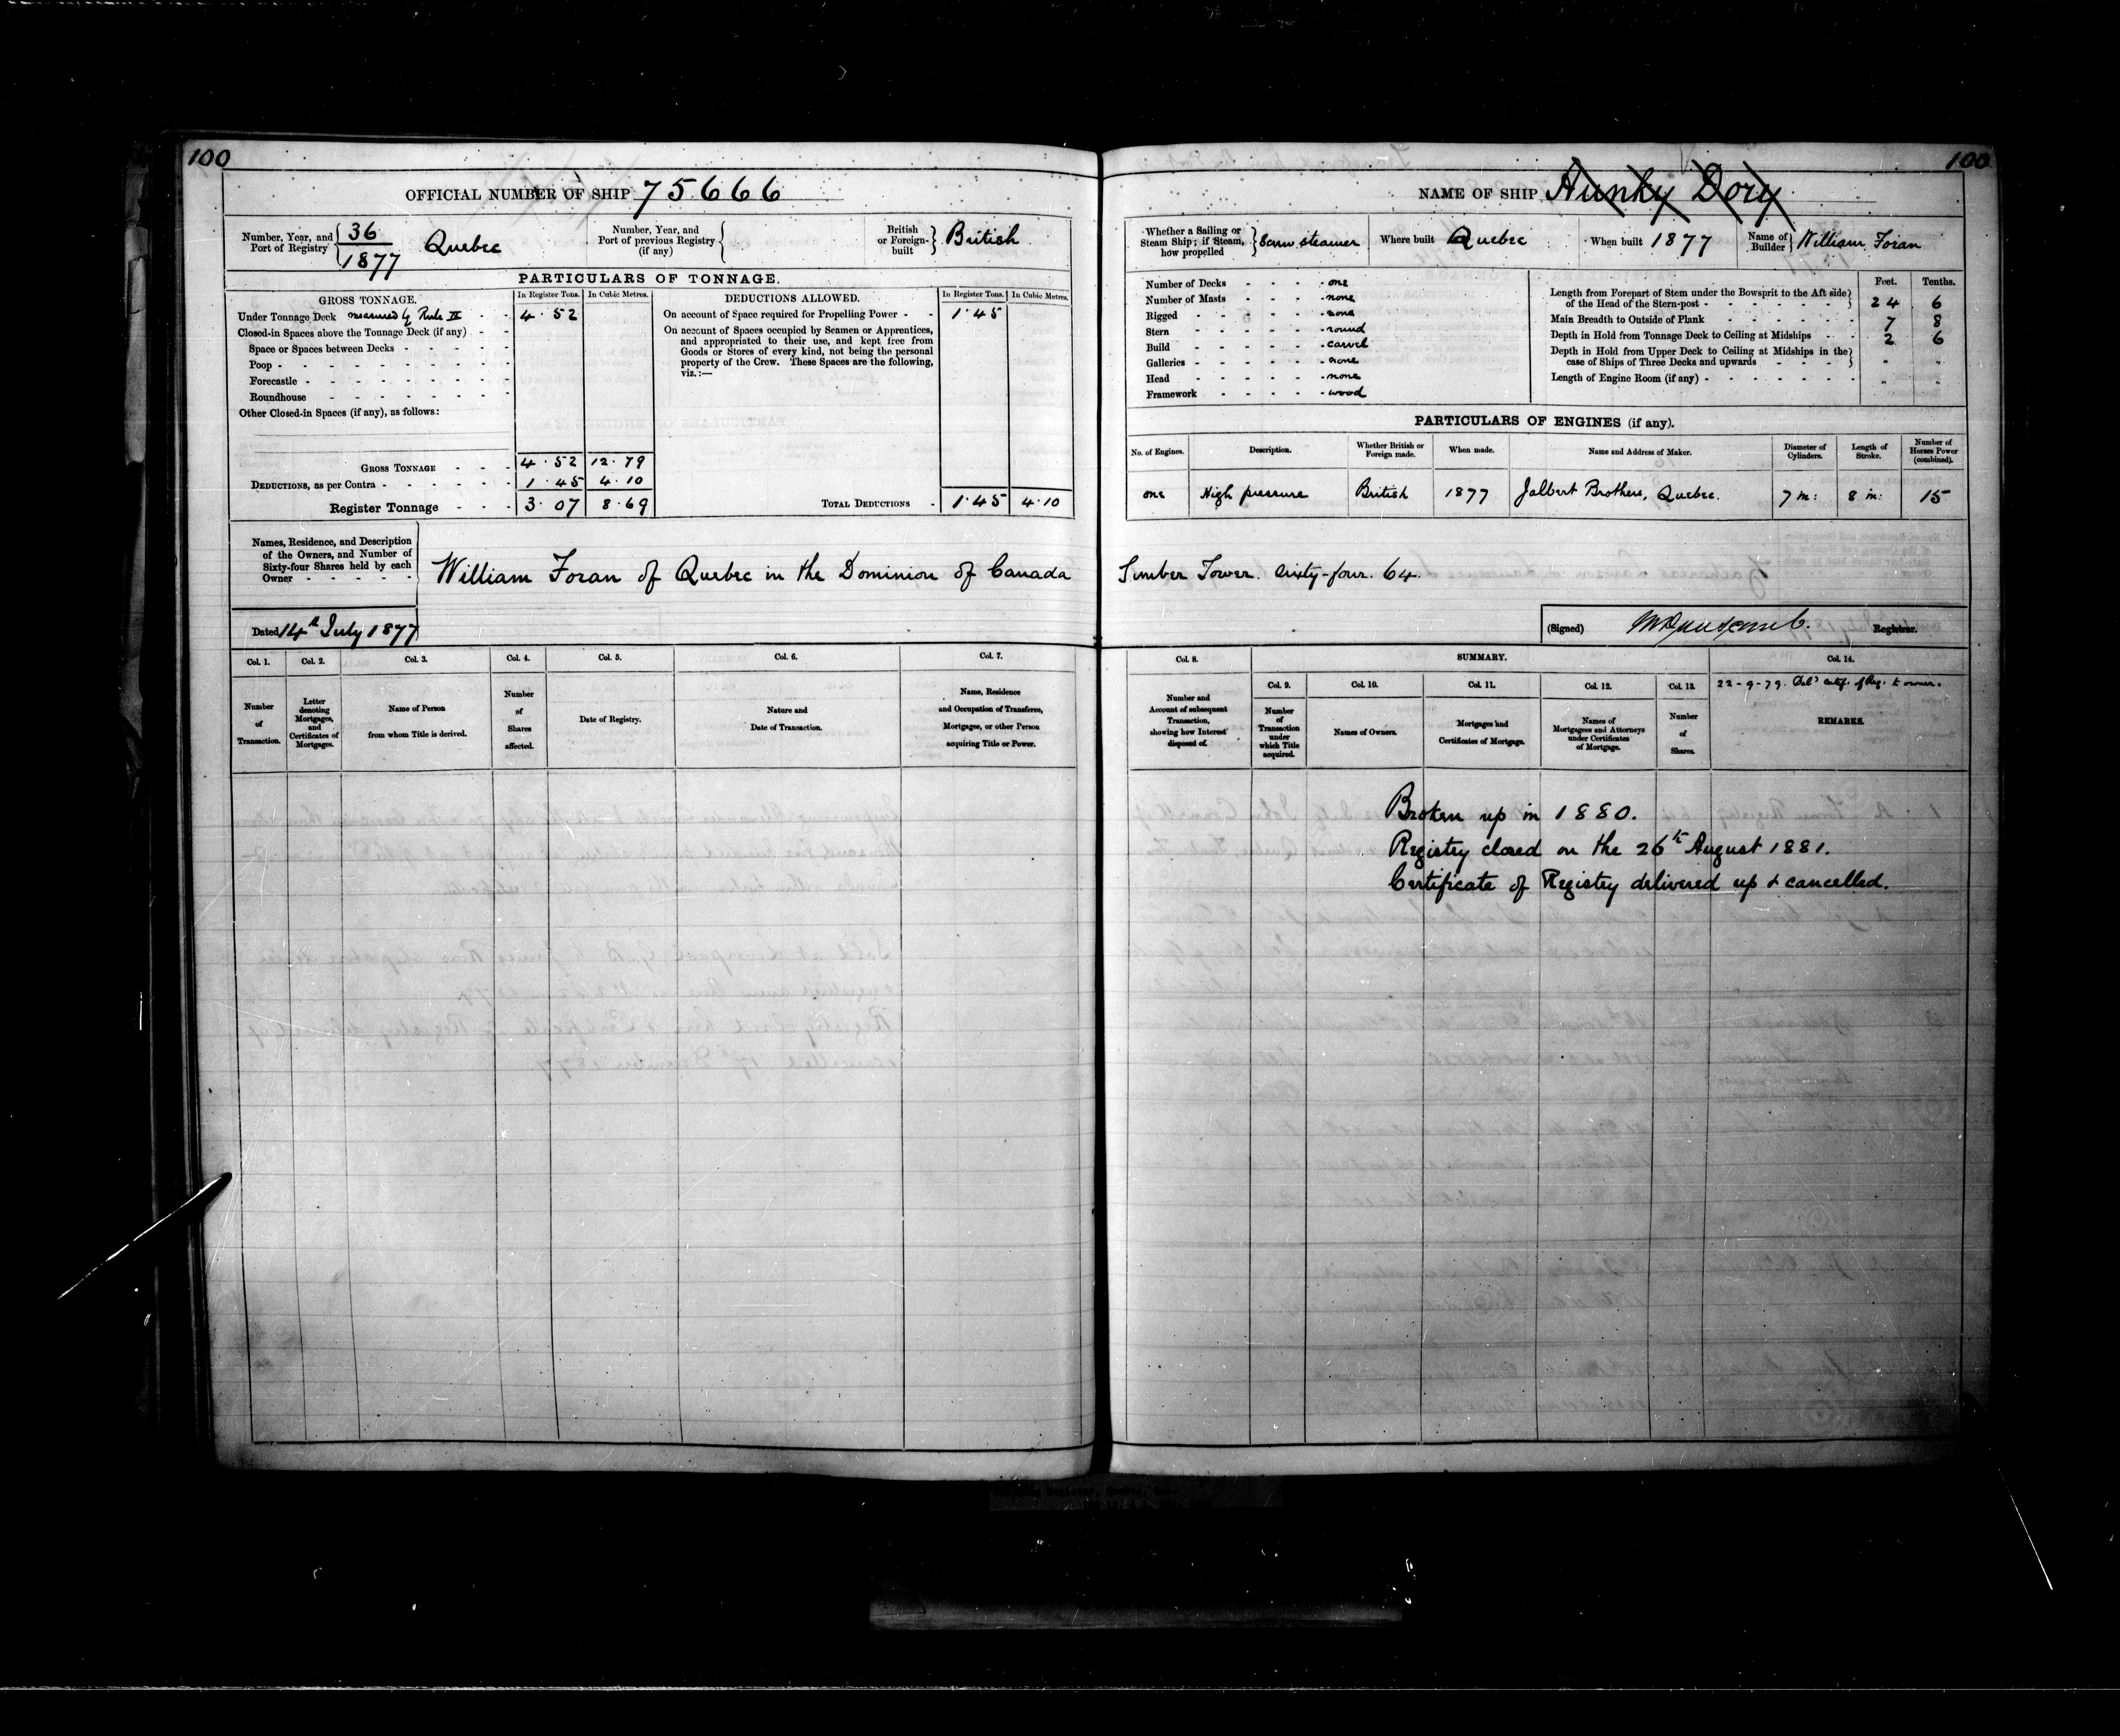 100
OFFICIAL NUMBER OF SHIP 75666
Number, Year, and Port of Registry 36 / 1877 Quebec
Number, Year, and Port of previous Registry (if any)
British or Foreign-built British
PARTICULARS OF TONNAGE.
GROSS TONNAGE. In Register Tons. In Cubic Metres.
Under Tonnage Deck measured by Rule II 4.52
Closed-in Spaces above the Tonnage Deck (if any)
Space or Spaces between Decks
Poop
Forecastle
Roundhouse
Other Closed-in Spaces (if any), as follows:
GROSS TONNAGE 4.52 12.79
DEDUCTIONS, as per Contra 1.45 4.10
Register Tonnage 3.07 8.69
DEDUCTIONS ALLOWED. In Register Tons. In Cubic Metres.
On account of Space required for Propelling Power 1.45
On account of Spaces occupied by Seamen or Apprentices,
and appropriated to their use, and kept free from
Goods or Stores of every kind, not being the personal
property of the Crew. These Spaces are the following,
viz.:—
TOTAL DEDUCTIONS 1.45 4.10
Names, Residence, and Description
of the Owners, and Number of
Sixty-four Shares held by each
Owner
William Foran of Quebec in the Dominion of Canada
Dated 14th July 1877
Col. 1. Col. 2. Col. 3. Col. 4. Col. 5. Col. 6. Col. 7.
Number of Transaction.
Letter denoting Mortgages, and Certificates of Mortgages.
Name of Person from whom Title is derived.
Number of Shares affected.
Date of Registry.
Nature and Date of Transaction.
Name, Residence and Occupation of Transferee, Mortgagee, or other Person acquiring Title or Power.
100
NAME OF SHIP Hunky Dory
Whether a Sailing or Steam Ship; if Steam, how propelled Screw steamer
Where built Quebec
When built 1877
Name of Builder William Foran
Number of Decks one
Number of Masts none
Rigged none
Stern round
Build carvel
Galleries none
Head none
Framework wood
Feet. Tenths.
Length from Forepart of Stem under the Bowsprit to the Aft side
of the Head of the Stern-post 24 6
Main Breadth to Outside of Plank 7 8
Depth in Hold from Tonnage Deck to Ceiling at Midships 2 6
Depth in Hold from Upper Deck to Ceiling at Midships in the
case of Ships of Three Decks and upwards " "
Length of Engine Room (if any) " "
PARTICULARS OF ENGINES (if any).
No. of Engines. Description. Whether British or Foreign made. When made. Name and Address of Maker. Diameter of Cylinders. Length of Stroke. Number of Horses Power (combined).
one High pressure British 1877 Jalbert Brothers, Quebec. 7 in: 8 in: 15
Timber Tower. sixty-four. 64.
(Signed) Registrar.
Col. 8. SUMMARY. Col. 14.
Col. 9. Col. 10. Col. 11. Col. 12. Col. 13.
22-9-79. Del'd Certif. of Reg. to owner.
Number and Account of subsequent Transaction, showing how Interest disposed of.
Number of Transaction under which Title acquired.
Names of Owners.
Mortgages and Certificates of Mortgage.
Names of Mortgagees and Attorneys under Certificates of Mortgage.
Number of Shares.
REMARKS.
Broken up in 1880.
Registry closed on the 26th August 1881.
Certificate of Registry delivered up & cancelled.